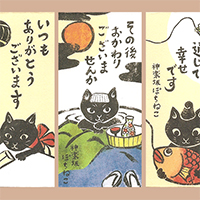 いつも
ありがとう
ございます
その後
おかわり
ございま
せんか
神楽坂
ぽちねこ
通じて
幸せ
です
神楽坂
ぽちねこ